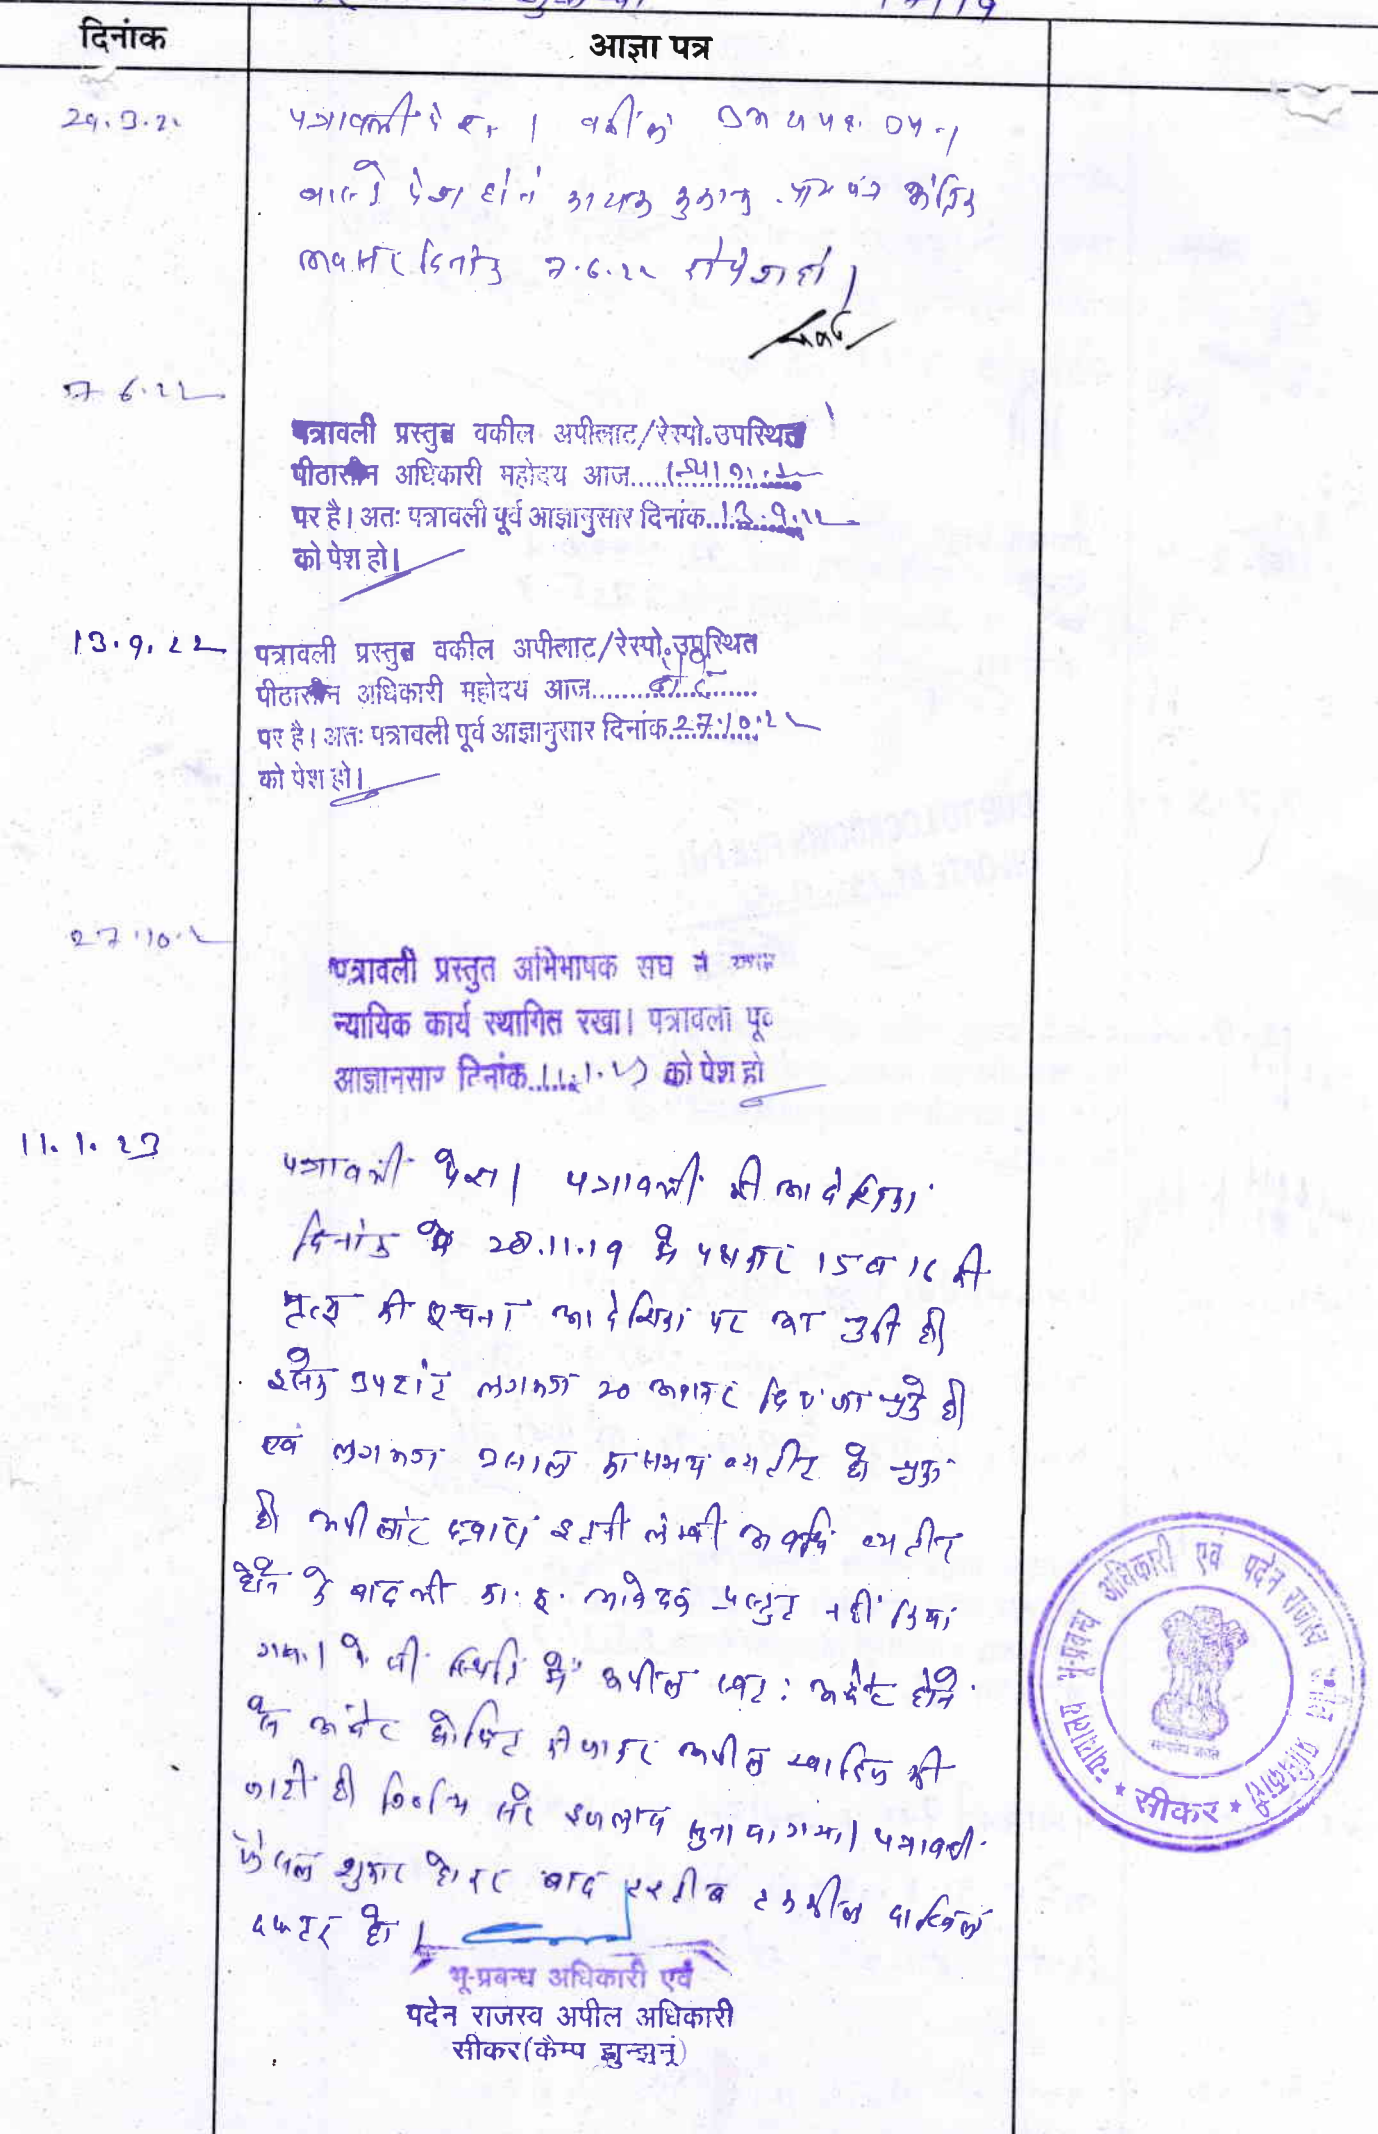 दिनांक
आज्ञा पत्र
29.3.22
पत्रावली पेश। वकील उभय पक्ष उप.।
वास्ते पेश होने कायम मुकाम प्रार्थना पत्र अंतिम
अवसर दिनांक 7.6.22 को पेश हो।
7.6.22
पत्रावली प्रस्तुत वकील अपीलाट/रेस्पो.उपस्थित
पीठासीन अधिकारी महोदय आज.....
पर है। अतः पत्रावली पूर्व आज्ञानुसार दिनांक..13.9.22
को पेश हो।
13.9.22
पत्रावली प्रस्तुत वकील अपीलाट/रेस्पो.उपस्थित
पीठासीन अधिकारी महोदय आज.....
पर है। अतः पत्रावली पूर्व आज्ञानुसार दिनांक.27.10.22
को पेश हो।
27.10.2
पत्रावली प्रस्तुत अभिभाषक संघ ने
न्यायिक कार्य स्थागित रखा। पत्रावली पूर्व
आज्ञानसार दिनांक..11.1.23 को पेश हो
11.1.23
पत्रावली पेश। पत्रावली की आदेशिका
दिनांक 28.11.19 में पक्षकार 15 व 16 की
मृत्यु की सूचना आदेशिका पर आ चुकी है।
इसके उपरांत लगभग 20 अवसर दिए जा चुके है।
एवं लगभग 3 साल का समय व्यतीत हो चुका
है। अपीलांट द्वारा इतनी लम्बी अवधि व्यतीत
होने के बाद भी का. मु. आवेदन प्रस्तुत नहीं किया
गया। ऐसी स्थिति में अपील स्वत: अबेट होने
से अबेट घोषित की जाकर अपील खारिज की
जाती है। निर्णय सरे इजलास सुनाया गया। पत्रावली
फैसल शुमार होकर बाद तरतीब तकमील दाखिल
दफ्तर हो।
भू-प्रबन्ध अधिकारी एवं
पदेन राजस्व अपील अधिकारी
सीकर(कैम्प झुन्झुनूं)
न्यायालय भू-प्रबन्ध अधिकारी एवं पदेन राजस्व अपील अधिकारी
* सीकर *